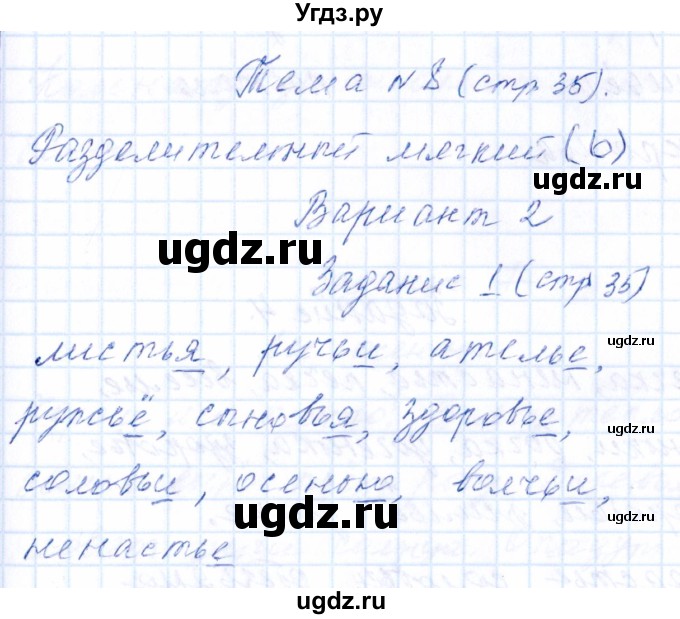 Угдз.ру
Тема N 8 (стр 35).
Разделительный мягкий (ь)
ugdz.ru
Вариант 2
ugdz.ru
Задание 1 (стр 35)
листья, ручьи, ателье,
ugdz.ru
ружьё, сыновья, здоровье,
соловьи, осенью, волчьи,
ugdz.ru
ugdz.ru
ненастье
ugdz.ru